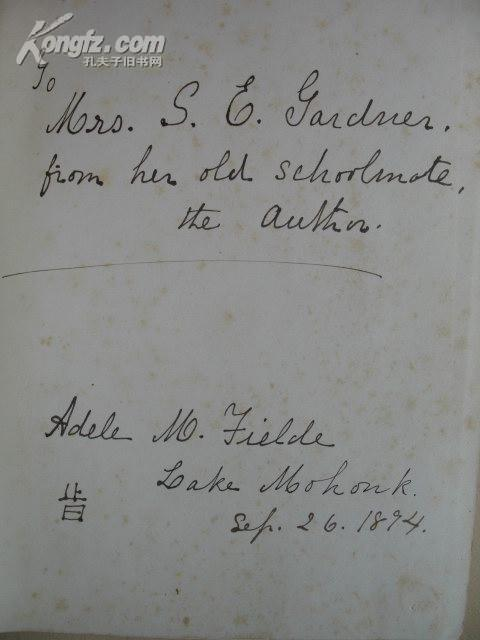 Kongfz.com
孔夫子旧书网
To
Mrs. S. E. Gardner.
from her old schoolmate,
the author.
Adele M. Fielde
Lake Mohonk.
Sep. 26. 1894.